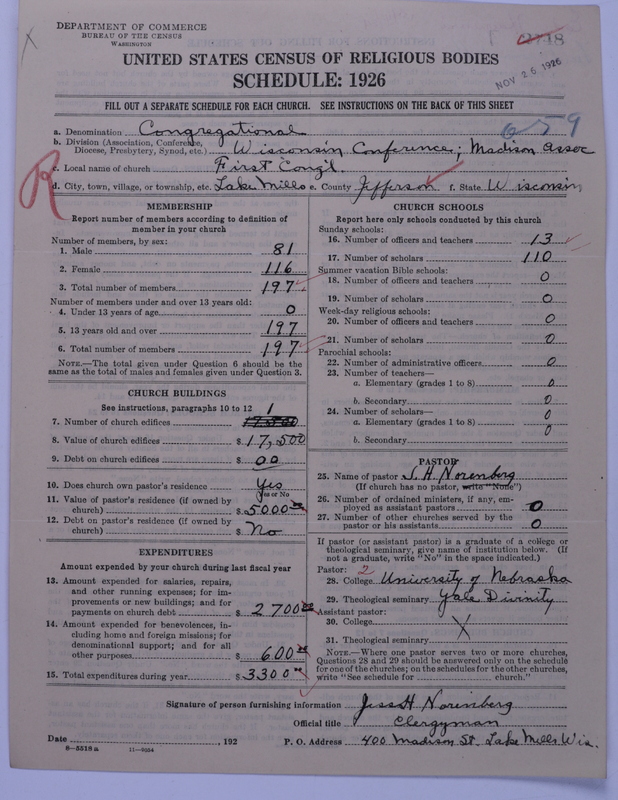 DEPARTMENT OF COMMERCE
BUREAU OF THE CENSUS
WASHINGTON
NOV 26 1926
UNITED STATES CENSUS OF RELIGIOUS BODIES
SCHEDULE: 1926
FILL OUT A SEPARATE SCHEDULE FOR EACH CHURCH. SEE INSTRUCTIONS ON THE BACK OF THIS SHEET
659
a. Denomination Congregational
b. Division (Association, Conference, Diocese, Presbytery, Synod, etc.) Wisconsin Conference; Madison Assoc
c. Local name of church First Cong'l.
R
d. City, town, village, or township, etc. Lake Mills e. County Jefferson f. State Wisconsin
MEMBERSHIP
Report number of members according to definition of
member in your church
Number of members, by sex:
1. Male 81
2. Female 116
3. Total number of members 197
Number of members under and over 13 years old:
4. Under 13 years of age 0
5. 13 years old and over 197
6. Total number of members 197
NOTE.—The total given under Question 6 should be
same as the total of males and females given under Question 3.
CHURCH BUILDINGS
See instructions, paragraphs 10 to 12
7. Number of church edifices 1
8. Value of church edifices $ 17,500
9. Debt on church edifices $ 00
10. Does church own pastor's residence? Yes
Yes or No
11. Value of pastor's residence (if owned by
church) $ 5000 00
12. Debt on pastor's residence (if owned by
church) $ No
EXPENDITURES
Amount expended by your church during last fiscal year
13. Amount expended for salaries, repairs,
and other running expenses; for im-
provements or new buildings; and for
payments on church debt $ 2700 00
14. Amount expended for benevolences, in-
cluding home and foreign missions; for
denominational support; and for all
other purposes $ 600 00
15. Total expenditures during year $ 3300 00
CHURCH SCHOOLS
Report here only schools conducted by this church
Sunday schools:
16. Number of officers and teachers 13
17. Number of scholars 110
Summer vacation Bible schools:
18. Number of officers and teachers 0
19. Number of scholars 0
Week-day religious schools:
20. Number of officers and teachers 0
21. Number of scholars 0
Parochial schools:
22. Number of administrative officers 0
23. Number of teachers—
a. Elementary (grades 1 to 8) 0
b. Secondary 0
24. Number of scholars—
a. Elementary (grades 1 to 8) 0
b. Secondary 0
PASTOR
25. Name of pastor J. H. Norenberg
(If church has no pastor, write "None")
26. Number of ordained ministers, if any, em-
ployed as assistant pastors 0
27. Number of other churches served by the
pastor or his assistants 0
If pastor (or assistant pastor) is a graduate of a college or
theological seminary, give name of institution below. (If
not a graduate, write "No" in the space indicated.)
Pastor: 2
28. College University of Nebraska
29. Theological seminary Yale Divinity
Assistant pastor:
30. College X
31. Theological seminary
NOTE.—Where one pastor serves two or more churches,
Questions 28 and 29 should be answered only on the schedule
for one of the churches; on the schedules for the other churches,
write "See schedule for church."
Signature of person furnishing information Jess H. Norenberg
Official title Clergyman
Date , 192 P. O. Address 400 Madison St. Lake Mills Wis.
8—5518 a 11—9554